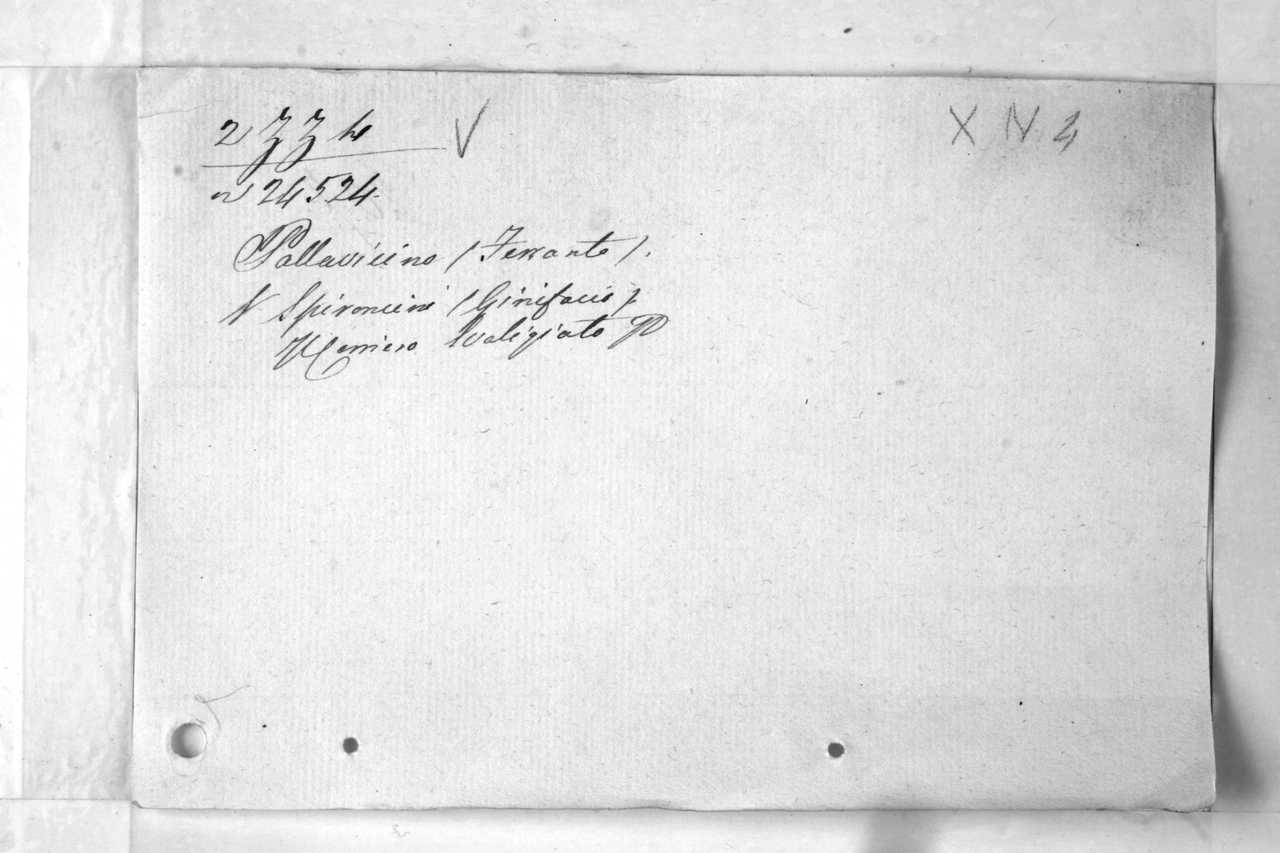 2 ʒ ʒ 4 V X N 4
n 24524
Pallavicino (Ferrante).
V Spironcini (Ginifacio)
Corriero Svaligiato